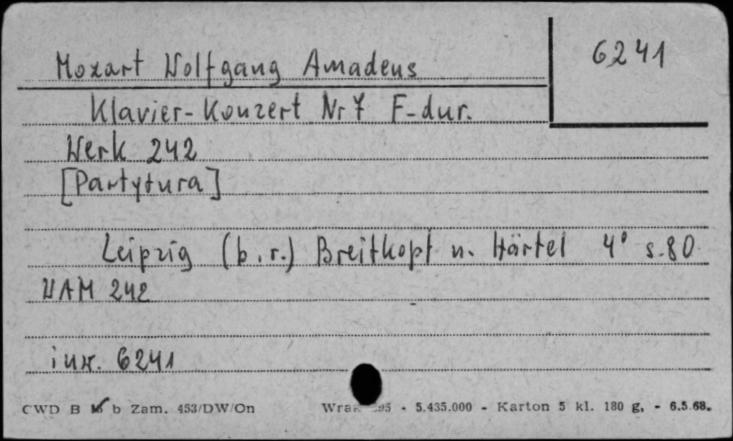 6241
Mozart Wolfgang Amadeus
Klavier-Konzert Nr 7 F-dur.
Werk 242
[Partytura]
Leipzig (b.r.) Breitkopf u. Härtel 4° s.80
WAM 242
inw. 6241
CWD B b Zam. 453/DW/On - 5.435.000 - Karton 5 kl. 180 g, - 6.5.68.